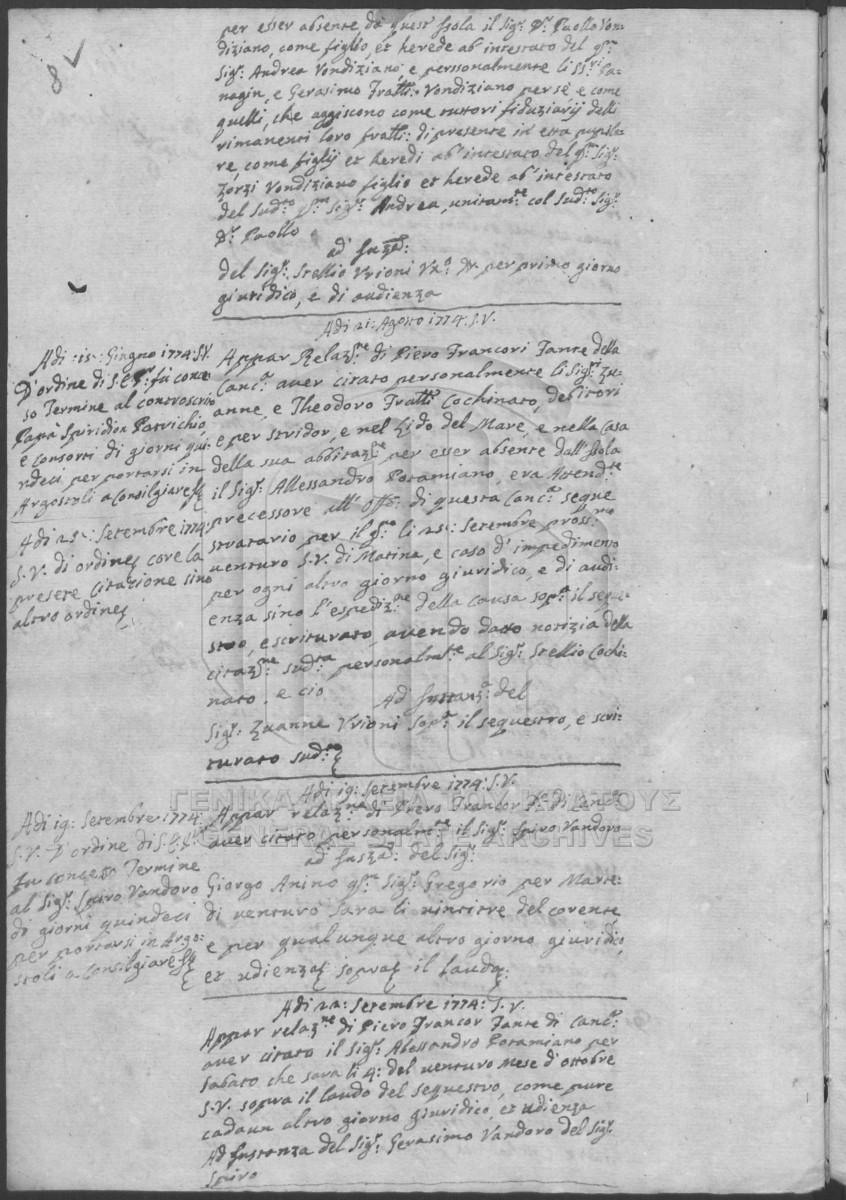 8
per esser absente da quest' Isola il Sig:r D:r Paollo Von-
diziano, come figlio, et herede ab' intestato del q:m
Sig:r Andrea Vondiziano, e personalmente li SS:ri Pa-
nagin, e Gerasimo Fratti: Vondiziano per sé e come
quelli, che aggiscono come tuttori fiduziarij delli
rimanenti loro fratti: di presente in età pupila-
re, come figlij et heredi ab' intestato del q:m Sig:r
Zorzi Vondiziano figlio et herede ab' intestato
del Sud:to q:m Sig:r Andrea, unitam:te col Sud:to Sig:r
D:r Paollo
ad' Instz:a:
del Sig:r Stellio Vrioni per primo giorno
giuridico, e di audienza
Adi 21: Agosto 1774: S.V.
Appar Relaz:ne di Piero Francori Fante della
Canc:a aver citato personalmente li Sig:ri Zu-
anne, e Theodoro Fratti: Cochinato, debitori
e per stridor, e nel Lido del Mare, e nella Casa
della sua abbitaz:ne per esser absente dall' Isola
il Sig:r Allessandro Potamiano, era Attend:te
precessore all' Off:o: di questa Canc:a seque
stratario per il g:no li 25: Setembre pross:mo
venturo S.V. di Matina, e caso d' impedimento
per ogni altro giorno giuridico, e di audi-
enza sino l'espediz:ne della causa sop:a il seque
stro, e scriturato, avendo dato notizia della
citaz:ne sud:ta personalm:te al Sig:r Stellio Cochi-
nato. e ciò
Ad' Instanz:a del
Sig:r Zuanne Vrioni sop:a il sequestro, e scri-
turato sud:to
Adi :15: Giugno 1774: S.V.
D'ordine di S.E. fù conce
so Termine al controscrito
Papà Spiridion Patrichio
e consorti di giorni qui
ndeci per portarsi in
Argostoli a Consilgiare
Adi 25: Setembre 1774:
S.V. di ordine core la
presete Citazione sino
altro ordine
Adi 19: Setembre 1774: S.V.
Appar relaz:ne di Piero Francor F:te di Canc:a
aver citato personalm:te il Sig:r Spiro Vandoro
ad' Instz:a: del Sig:r
Giorgo Anino q:m Sig:r Gregorio per Marte-
di venturo Sara li vintitre del corente
e per qualunque altro giorno giuridico,
et udienza sopra il laudo.
Adi 19: Setembre 1774:
S.V. D'ordine di S.E.
fu concesso Termine
al Sig:r Spiro Vandoro
di giorni quindeci
per portarsi in Argo-
stoli a Consilgiare
Adi 22: Setembre 1774: S.V.
Appar relaz:ne di Piero Francor Fante di Canc:a
aver citato il Sig:r Alessandro Potamiano per
Sabato che sara li 4: del venturo Mese d' ottobre
S.V. sopra il laudo del sequestro, come pure
cadaun altro giorno giuridico et udienza
Ad Instanza del Sig:r Gerasimo Vandoro del Sig:r
Spiro
ΓΕΝΙΚΑ ΑΡΧΕΙΑ ΤΟΥ ΚΡΑΤΟΥΣ
GENERAL STATE ARCHIVES